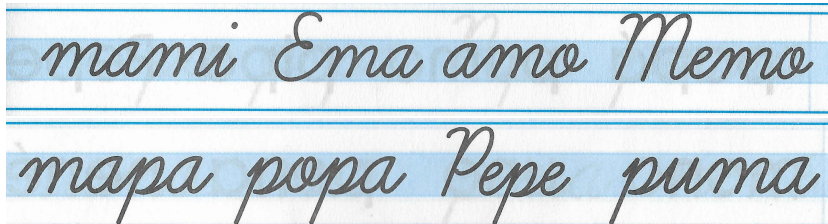 mami Ema amo Memo
mapa popa Pepe puma